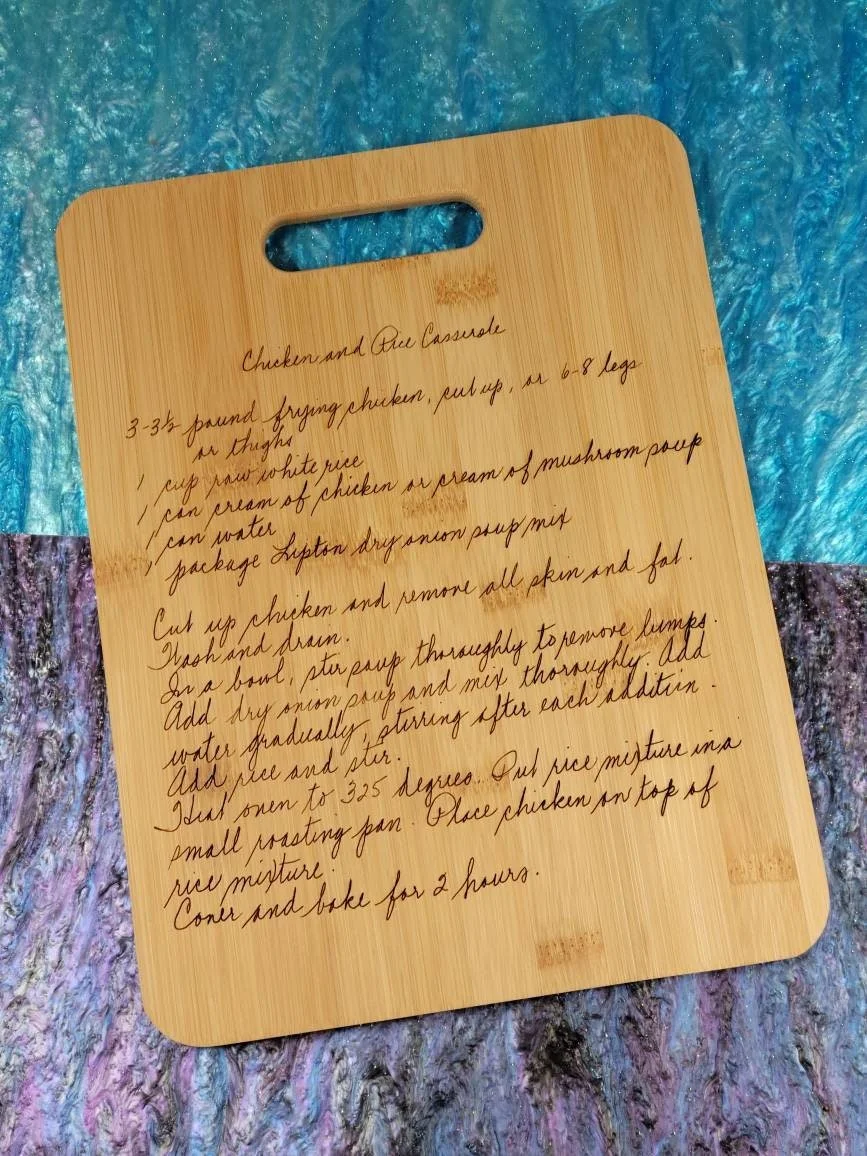 Chicken and Rice Casserole
3-3½ pound frying chicken, cut up, or 6-8 legs
or thighs
1 cup raw white rice
1 can cream of chicken or cream of mushroom soup
1 can water
1 package Lipton dry onion soup mix
Cut up chicken and remove all skin and fat.
Wash and drain.
In a bowl, stir soup thoroughly to remove lumps.
Add dry onion soup and mix thoroughly. Add
water gradually, stirring after each addition.
Add rice and stir.
Heat oven to 325 degrees. Put rice mixture in a
small roasting pan. Place chicken on top of
rice mixture.
Cover and bake for 2 hours.